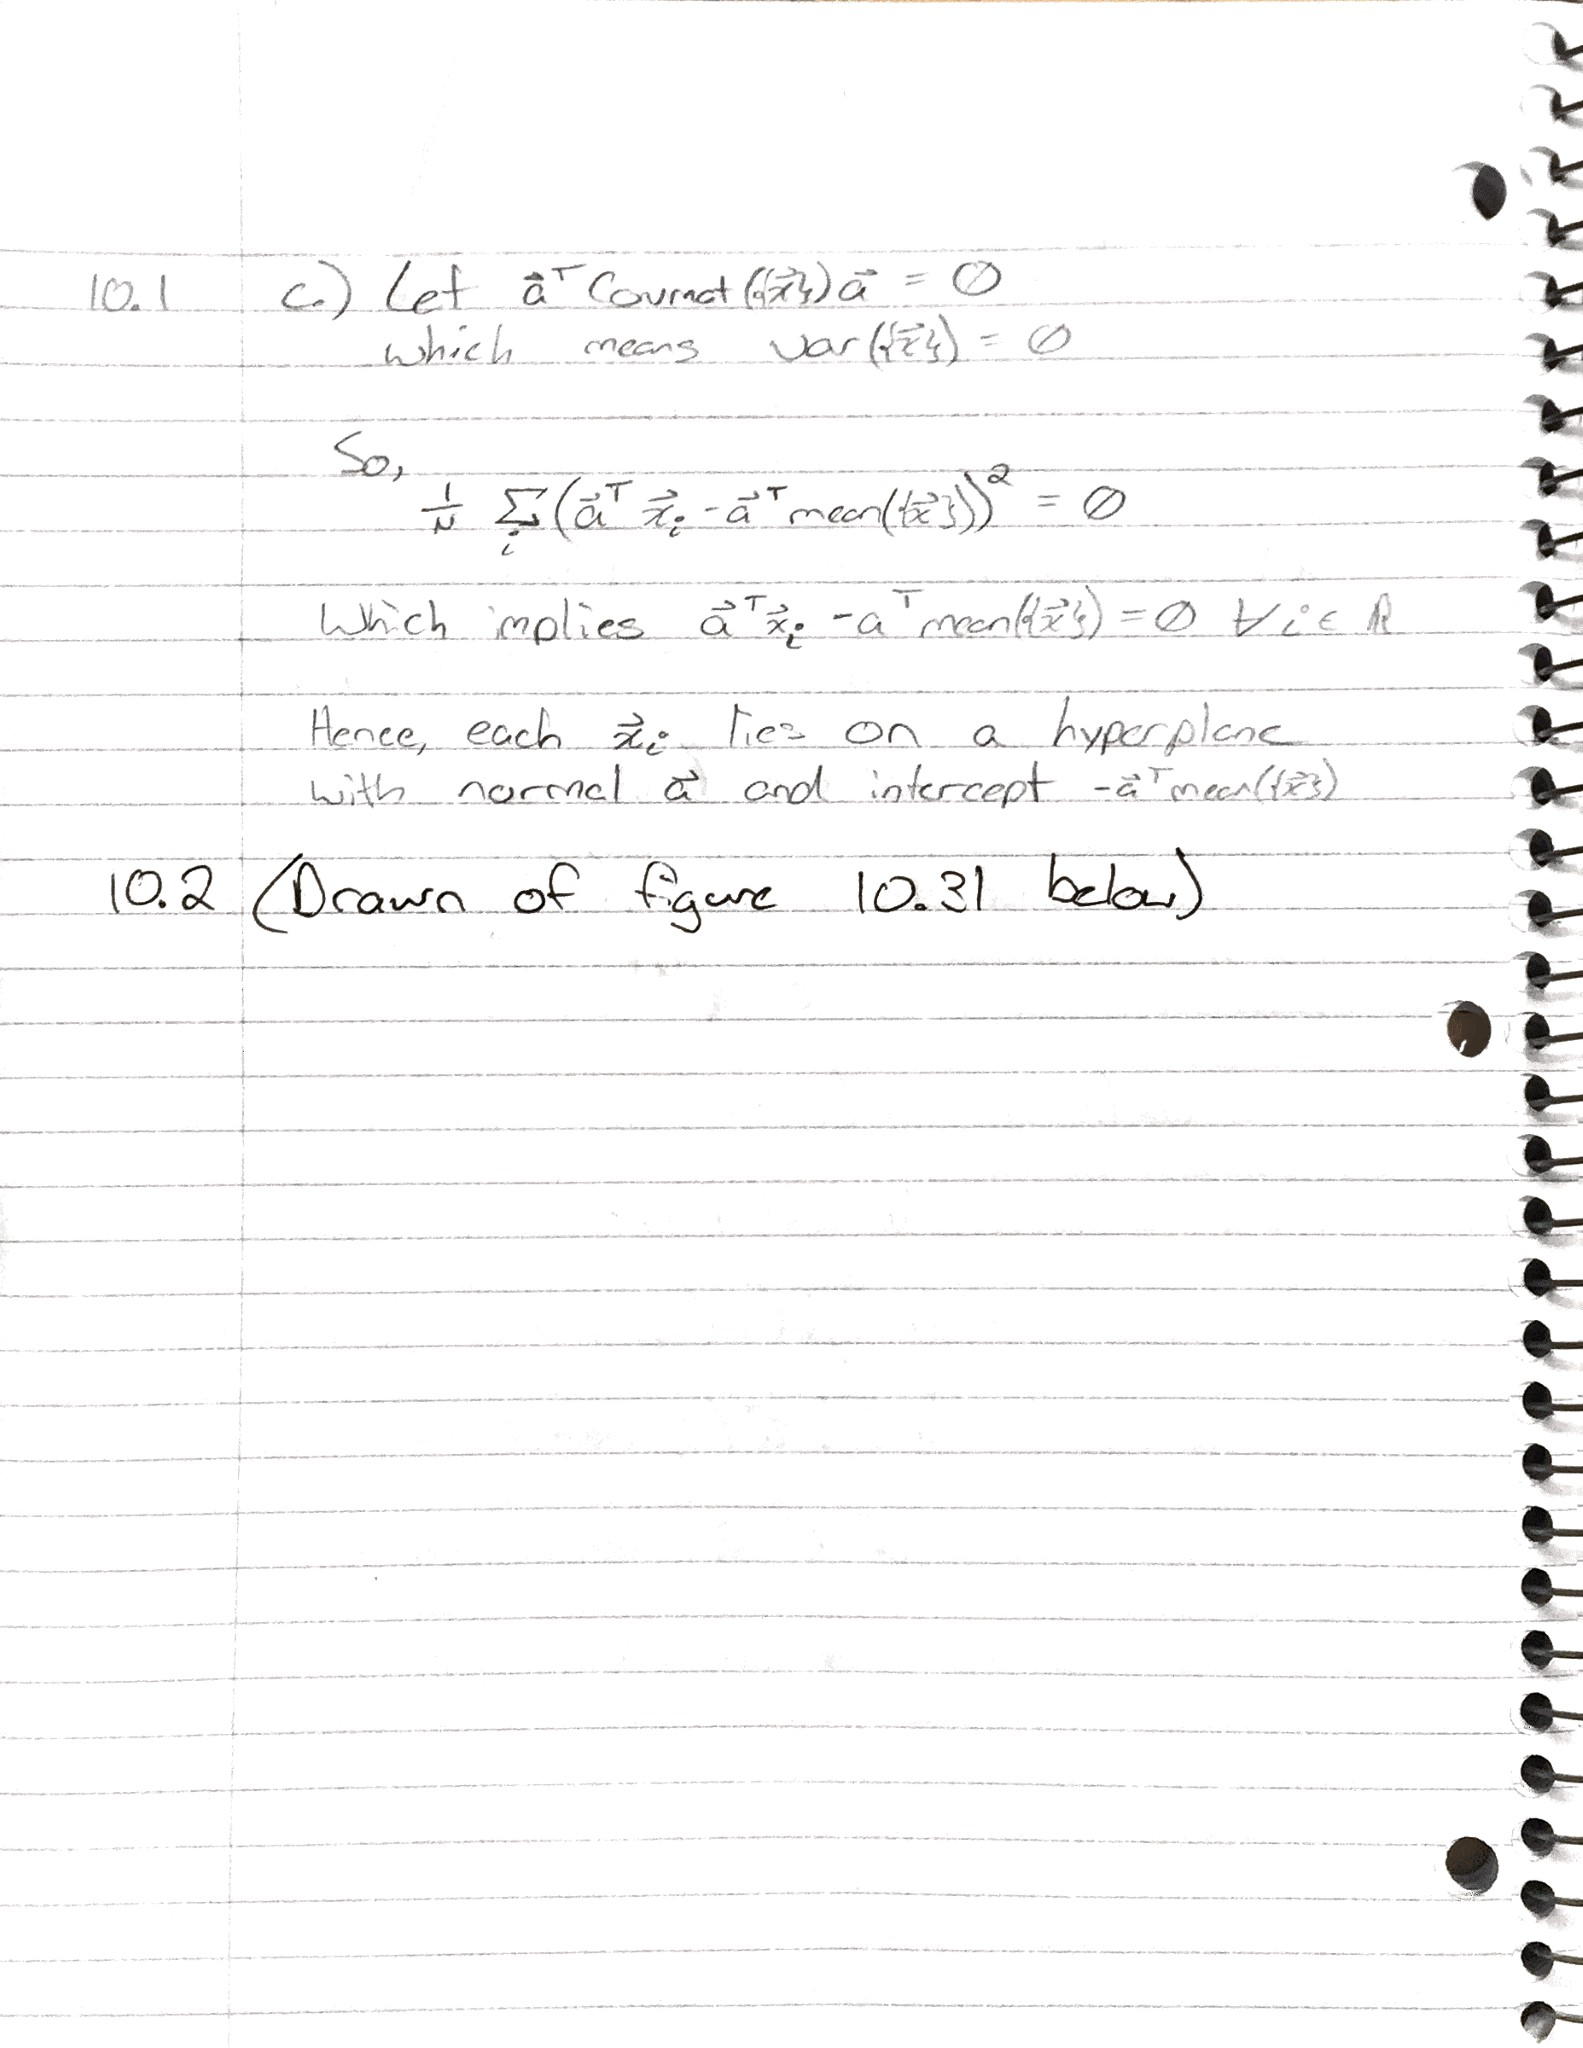 10.1 c.) Let a⃗ᵀ Covmat({x⃗}) a⃗ = 0
which means var({x⃗}) = 0
So,
1/N Σᵢ (a⃗ᵀ x⃗ᵢ - a⃗ᵀ mean({x⃗}))² = 0
Which implies a⃗ᵀx⃗ᵢ - aᵀ mean({x⃗}) = 0 ∀ i ∈ ℝ
Hence, each x⃗ᵢ lies on a hyperplane
with normal a⃗ and intercept -a⃗ᵀmean({x⃗})
10.2 (Drawn of figure 10.31 below)